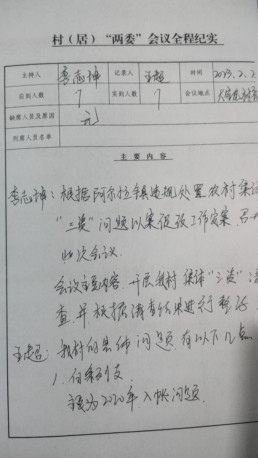 村（居）“两委”会议全程纪实
主持人 李志坤 记录人 王超 时间 2023.2.2
应到人数 7 实到人数 7 会议地点
缺席人员及原因 无
列席人员名单
主要内容
李志坤：根据阿尔拉镇违规处置农村集体
“三资”问题以案促改工作方案，召开
此次会议。
会议主要内容 开展我村集体“三资”清
查，并根据清查结果进行整改。
王超：我村的具体问题有以下几点
1.
主要为2020年入帐问题